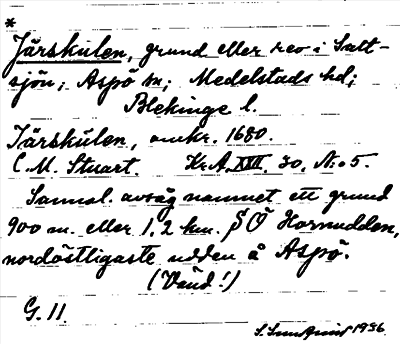 *
Järskulen, grund eller rev i Salt-
sjön; Aspö sn; Medelstads hd;
Blekinge l.
Järskulen, omkr. 1680.
C. M. Stuart. Kr.A. XVII. 30. N:o 5.
Sannol. avsåg namnet ett grund
900 m. eller 1,2 km. SÖ Hornudden,
nordöstligaste udden å Aspö.
(Vänd!)
G. 11.
1936.